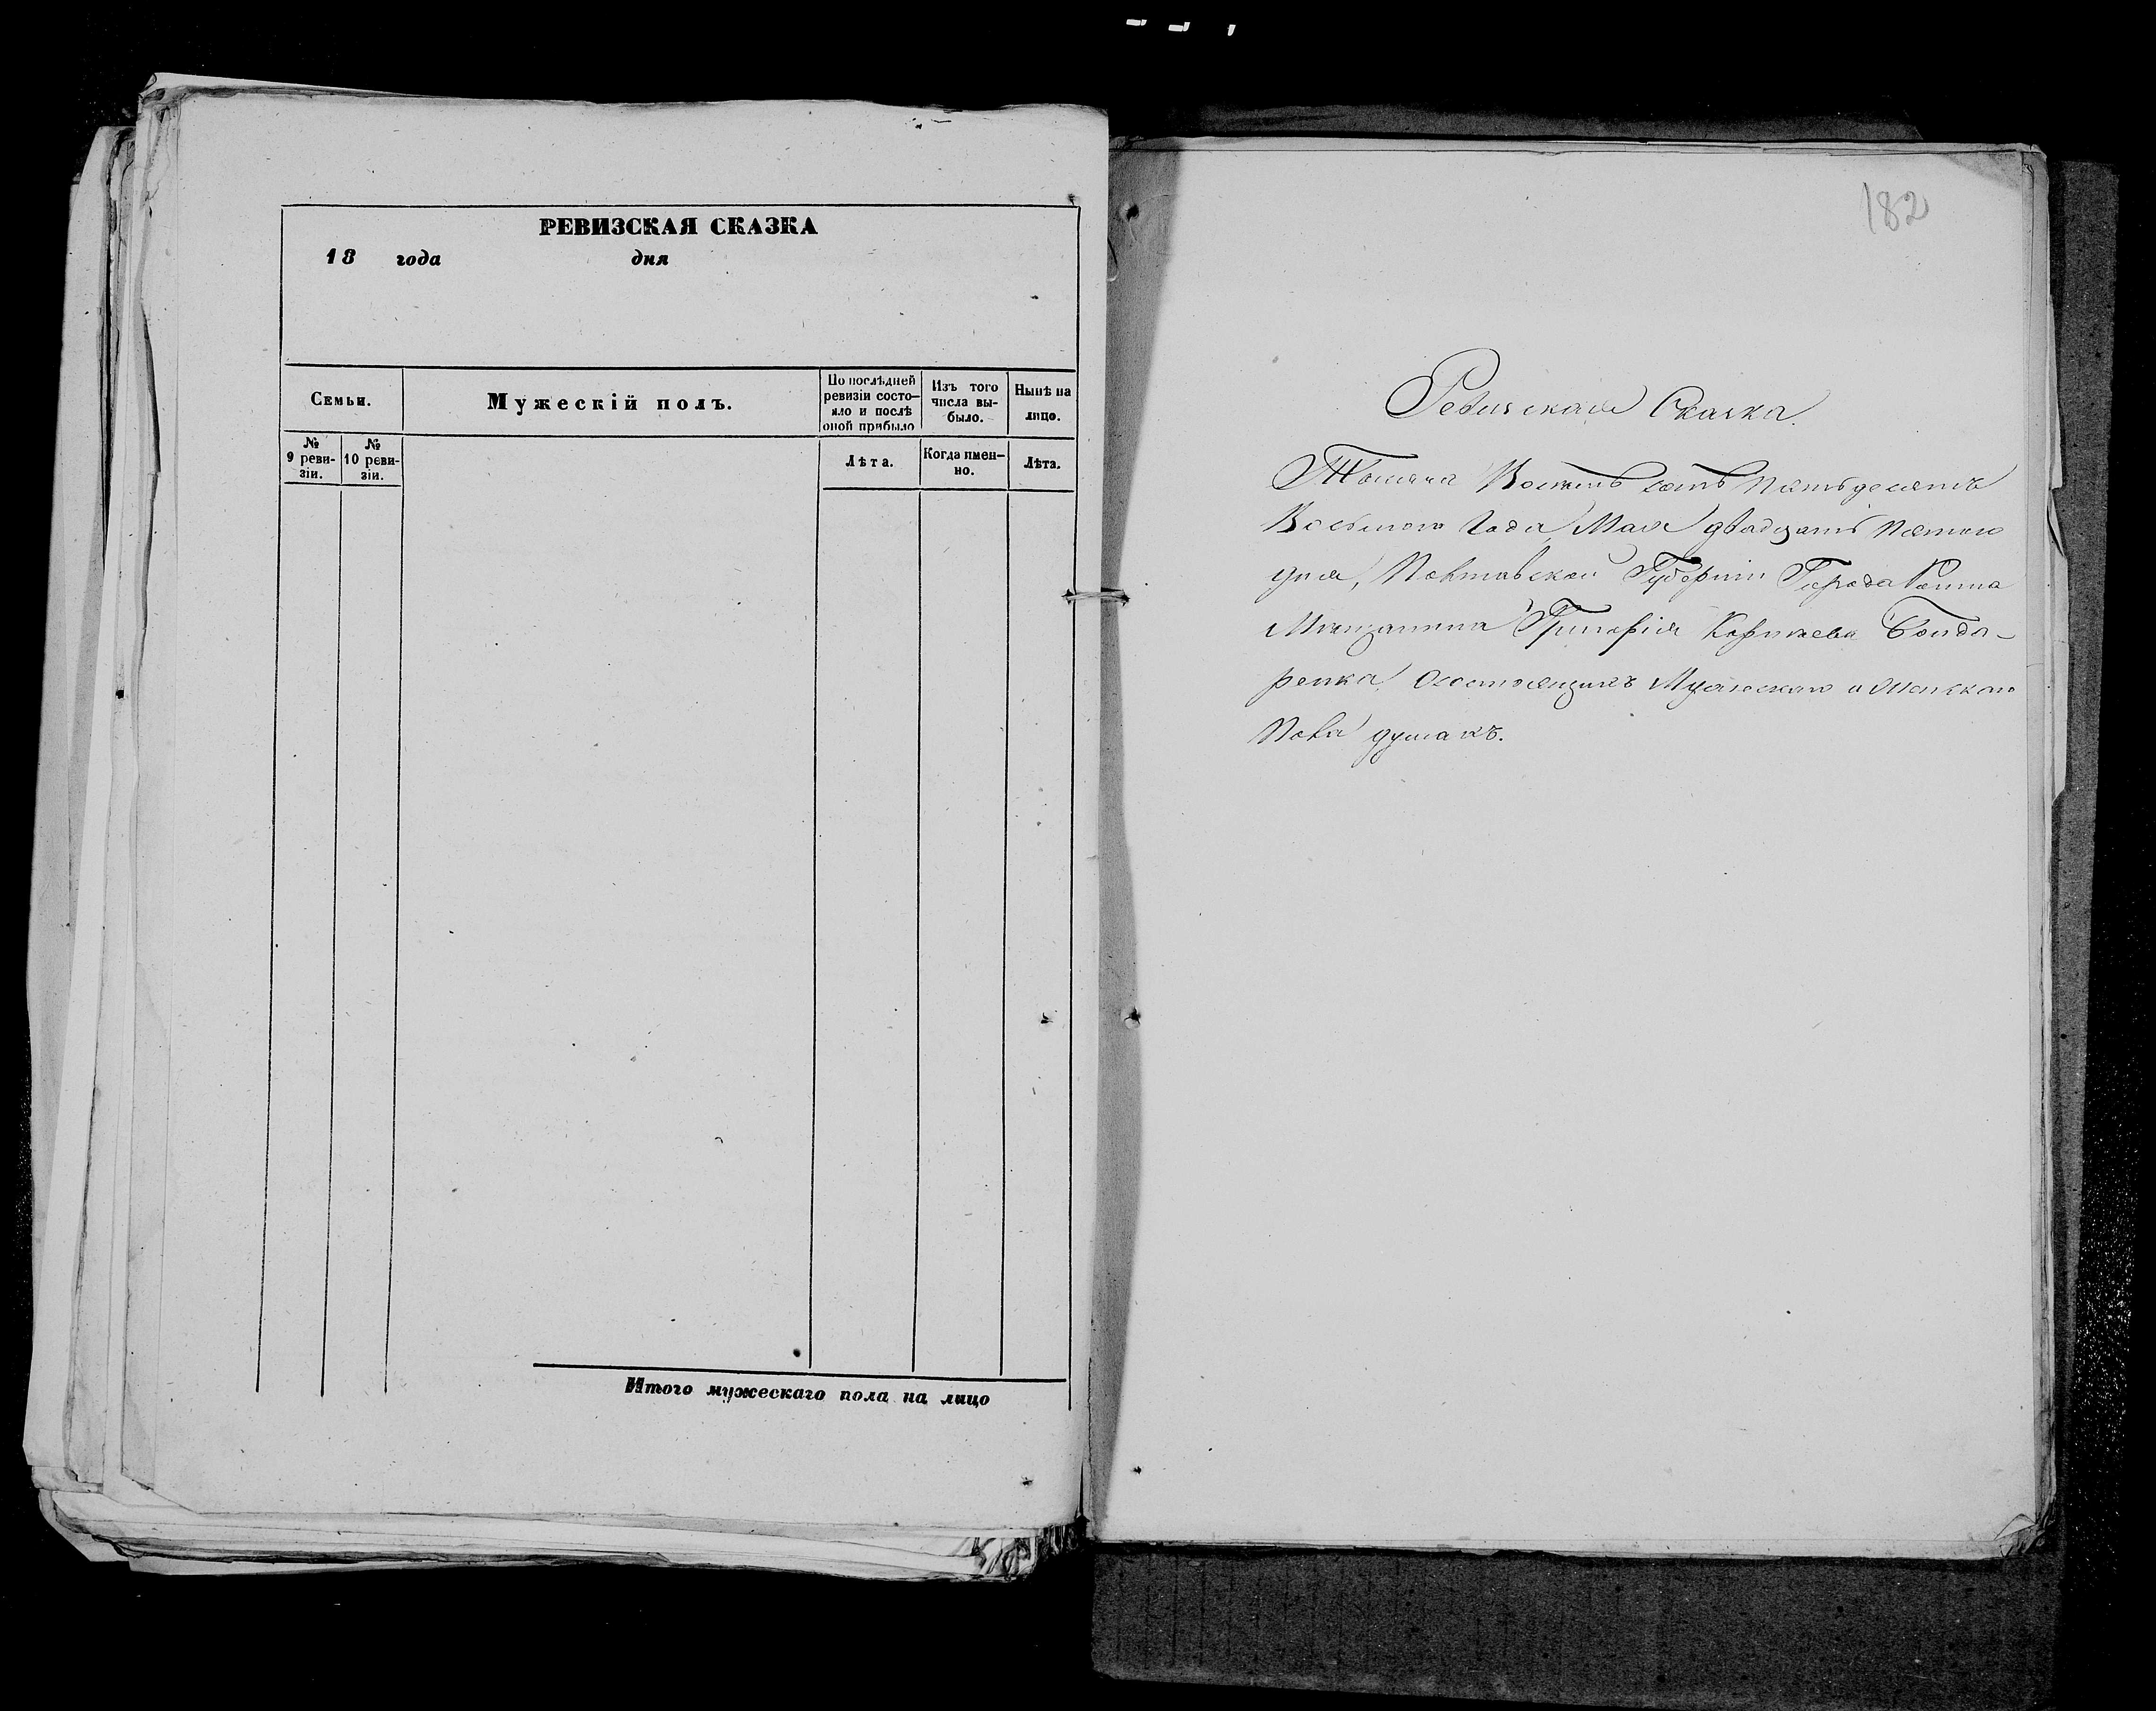 РЕВИЗСКАЯ СКАЗКА
18 года дня
Семьи.
Мужескій полъ.
По послѣдней
ревизіи состо-
яло и послѣ
оной прибыло
Изъ того
числа вы-
было.
Ныиѣ на
лицо.
№
9 реви-
зіи.
№
10 реви-
зіи.
Лѣта.
Когда имен-
но.
Лѣта.
Итого мужескаго пола на лицо
182
Ревизская Сказка.
Тысяча Восемь сотъ Пятьдесятъ
Восьмого Года Мая двадцать Пятого
дня, Полтавской Губерніи Города Ромна
Мѣщанина Григорія Бонда-
ренка О состоящихъ Мужескаго и Женскаго
Пола душахъ.